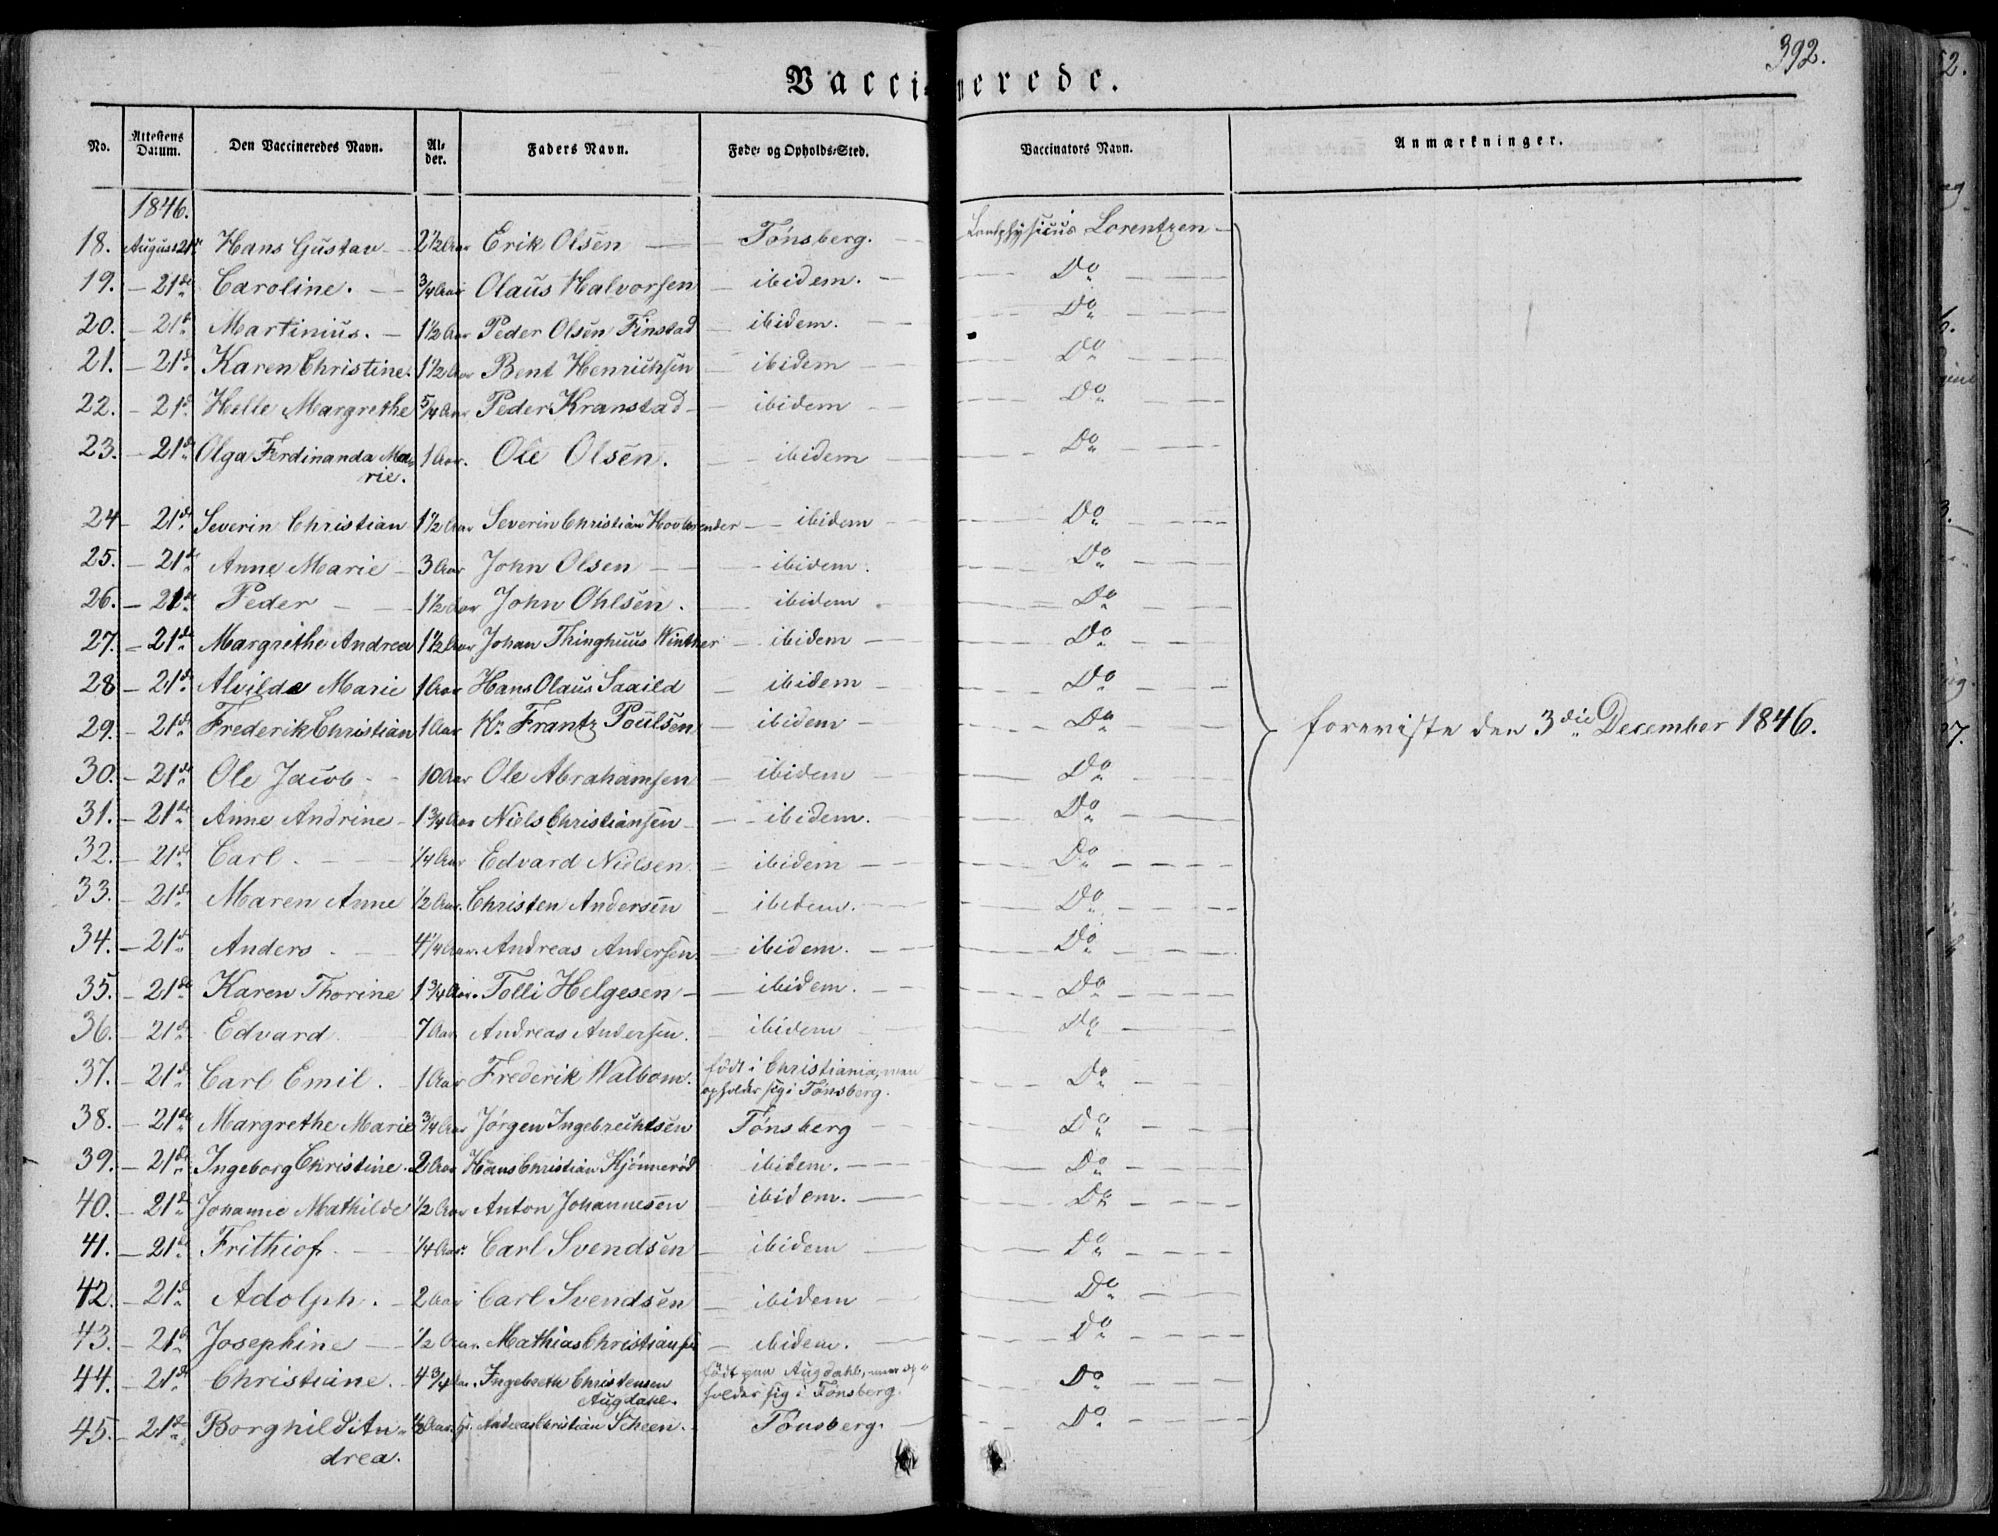 392.
Vaccinerede.
No. Attestens Datum. Den Vaccineredes Navn. Al-der. Faders Navn. Føde- og Opholds-Sted. Vaccinators Navn. Anmærkninger.
1846.
18. August 21de Hans Gustav 2 1/2 Aar Erik Olsen Tønsberg. Landphysicus Lorentzen
19. 21de Caroline. 3/4 Aar Olaus Halvorsen ibidem. Do
20. 21de Martinius. 1 1/2 Aar Peder Olsen Finstad ibidem. Do
21. 21de Karen Christine. 1 1/2 Aar Bent Henrichsen ibidem Do
22. 21de Helle Margrethe 5/4 Aar Peder Kranstad ibidem Do
23. 21de Olga Ferdinanda Ma- 1 Aar. Ole Olsen. ibidem Do
rie.
24 21de Severin Christian 1 1/2 Aar Severin Christian ibidem Do
25. 21de Anne Marie 3 Aar John Olsen ibidem. Do
26. 21de Peder 1 1/2 Aar John Ohlsen. ibidem Do
27. 21de Margrethe Andrea 1 1/2 Aar Johan Thinghuus Winther ibidem Do
28 21de Alvilda Marie 1 Aar Hans Olaus Saaild ibidem Do
29. 21de Frederik Christian 1 Aar Hr. Frantz Poulsen ibidem Do foreviste den 3die December 1846.
30. 21de Ole Jacob 10 Aar Ole Abrahamsen ibidem Do
31. 21de Anne Andrine 1 3/4 Aar Niels Christiansen ibidem. Do
32. 21de Carl. 1/4 Aar Edvard Nielsen ibidem Do
33. 21de Maren Anne 1/2 Aar. Christen Andersen ibidem. Do
34. 21de Anders 4 1/4 Aar. Andreas Andersen ibidem. Do
35. 21de Karen Thorine 1 3/4 Aar. Tolli Helgesen ibidem. Do
36. 21de Edvard 7 Aar Andreas Andersen. ibidem Do
37. 21de Carl Emil. 1 Aar Frederik Walbom. født i Christiania, men Do
opholder sig i Tønsberg.
38. 21de Margrethe Marie 3/4 Aar Jørgen Ingebrechtsen Tønsberg Do
39. 21de Ingeborg Christine. 2 Aar Hans Christian Kjønnerød ibidem. Do
40. 21de Johanne Mathilde 1/2 Aar Anton Johannesen ibidem. Do
41. 21de Frithiof. 1/4 Aar. Carl Svendsen ibidem Do
42. 21de Adolph. 2 Aar Carl Svendsen ibidem Do
43. 21de Josephine 1/2 Aar. Mathias Christiansen ibidem. Do
44. 21de Christiane. 4 3/4 Aar. Ingebreth Christensen født paa Augdahl, men op- Do
Augdahl. holder sig i Tønsberg.
45. 21de Borghild An- 1/2 Aar. Andreas Christian Scheen. Tønsberg. Do
drea.